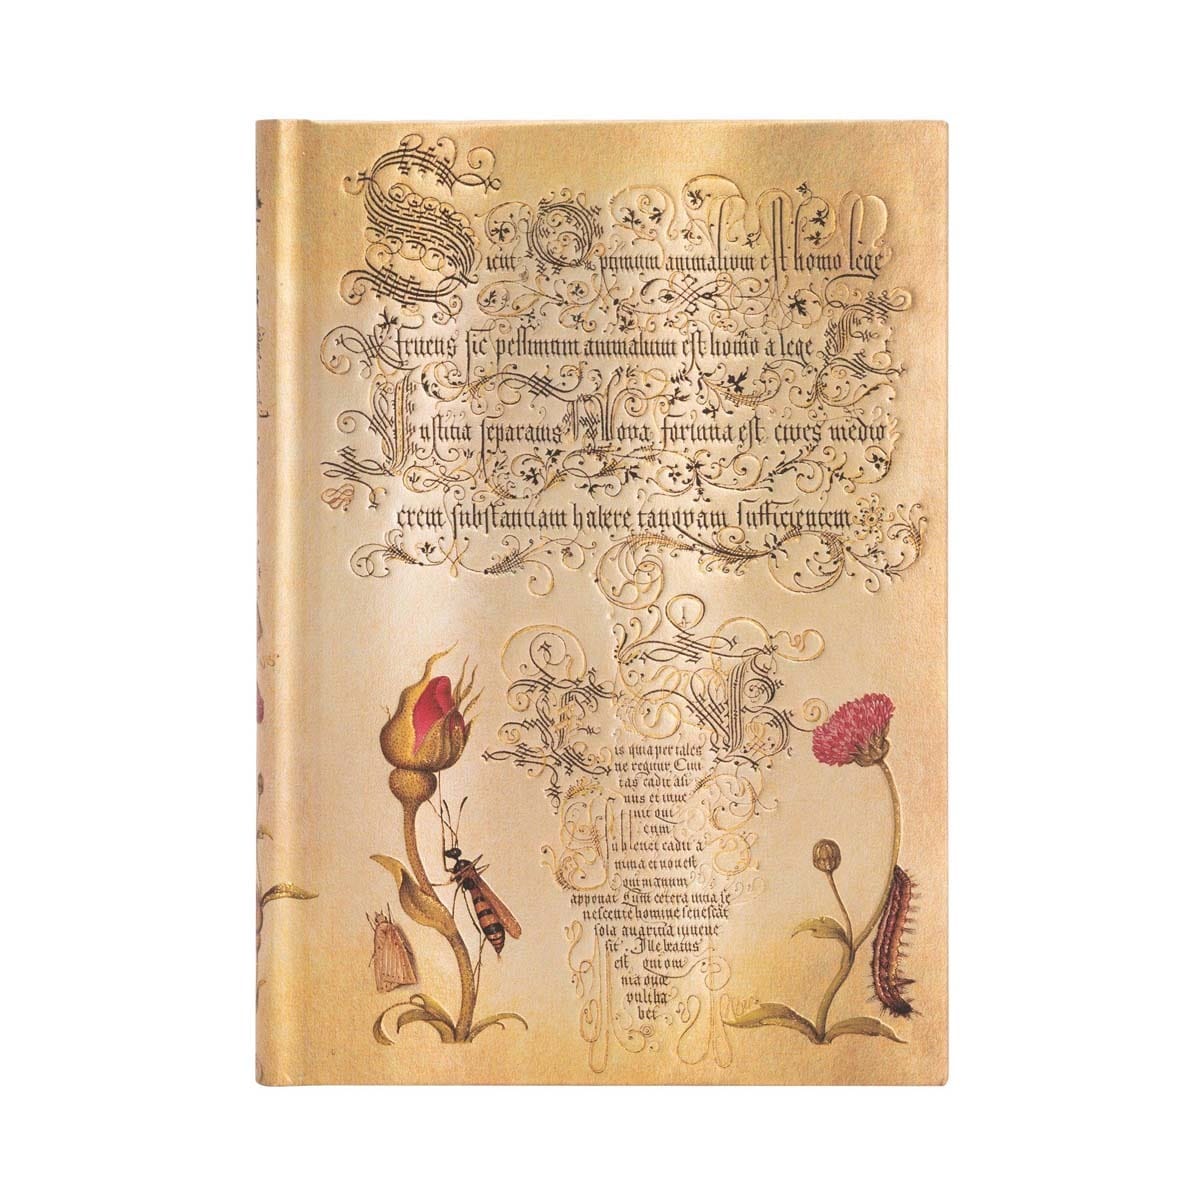 Sicut Optimum animalium est homo lege
Fruens sic pessimum animalium est homo a lege E
Iustitia separatus Nova fortuna est cives medio
crem substantiam habere tanquam sufficientem
B
is quia per tales
ne regitur Civi
tas cadit asi
nus et inve
nit qui
eum
sublevet cadit a
nima et non est
qui manum
apponat Cum cetera vitia se
nescente homine senescāt
sola avaritia iuvene
sit. Ille beatus
est qui om
nia quae
vult ha
bet